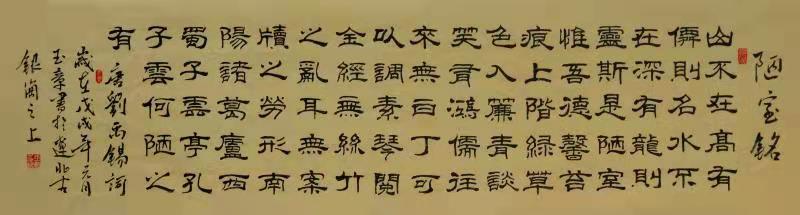 陋室銘
山不在高有
僊則名水不
在深有龍則
靈斯是陋室
惟吾德馨苔
痕上階綠草
色入簾青談
笑有鴻儒往
來無白丁可
以調素琴閱
金經無絲竹
之亂耳無案
牘之勞形南
陽諸葛廬西
蜀子雲亭孔
子雲何陋之
有 唐劉禹錫詞
歲在戊戌年元月
玉章書於遼北古
銀岡之上